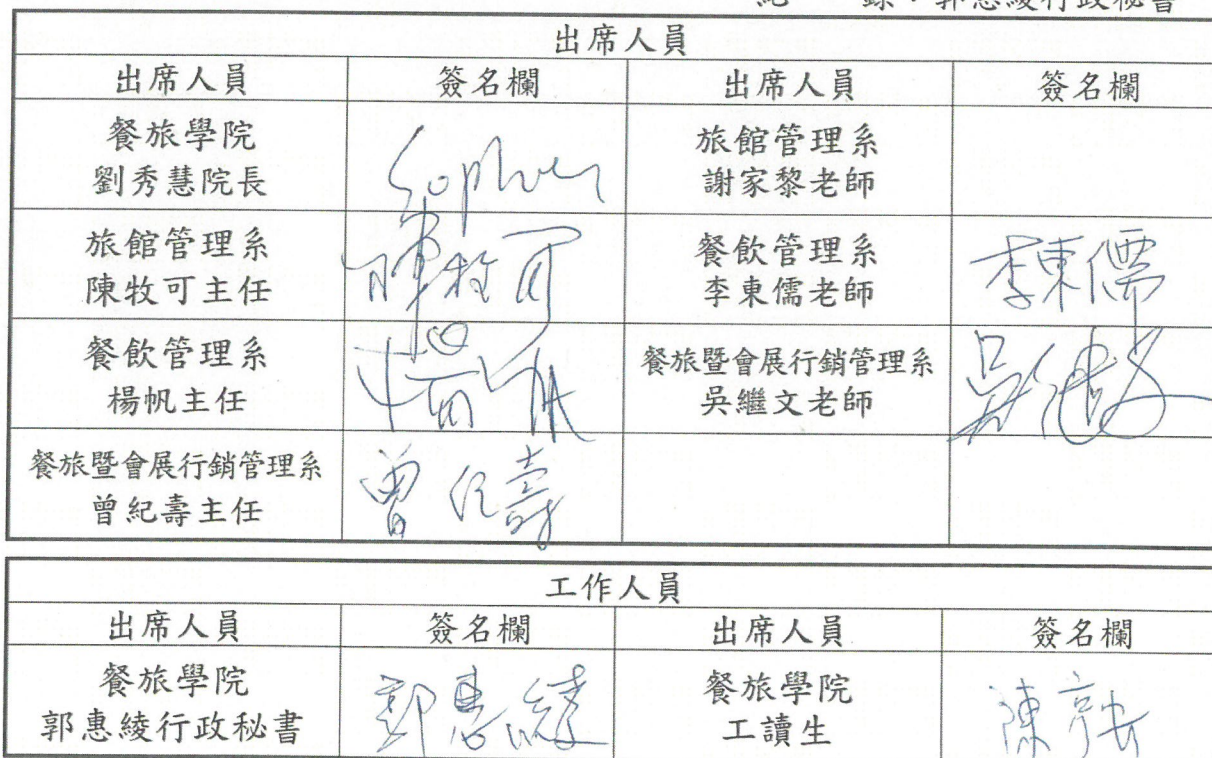 紀 錄：郭惠綾行政秘書
出席人員
出席人員 簽名欄 出席人員 簽名欄
餐旅學院
劉秀慧院長
Sophie
旅館管理系
謝家黎老師
旅館管理系
陳牧可主任
陳牧可
餐飲管理系
李東儒老師
李東儒
餐飲管理系
楊帆主任
楊帆
餐旅暨會展行銷管理系
吳繼文老師
吳繼文
餐旅暨會展行銷管理系
曾紀壽主任
曾紀壽
工作人員
出席人員 簽名欄 出席人員 簽名欄
餐旅學院
郭惠綾行政秘書
郭惠綾
餐旅學院
工讀生